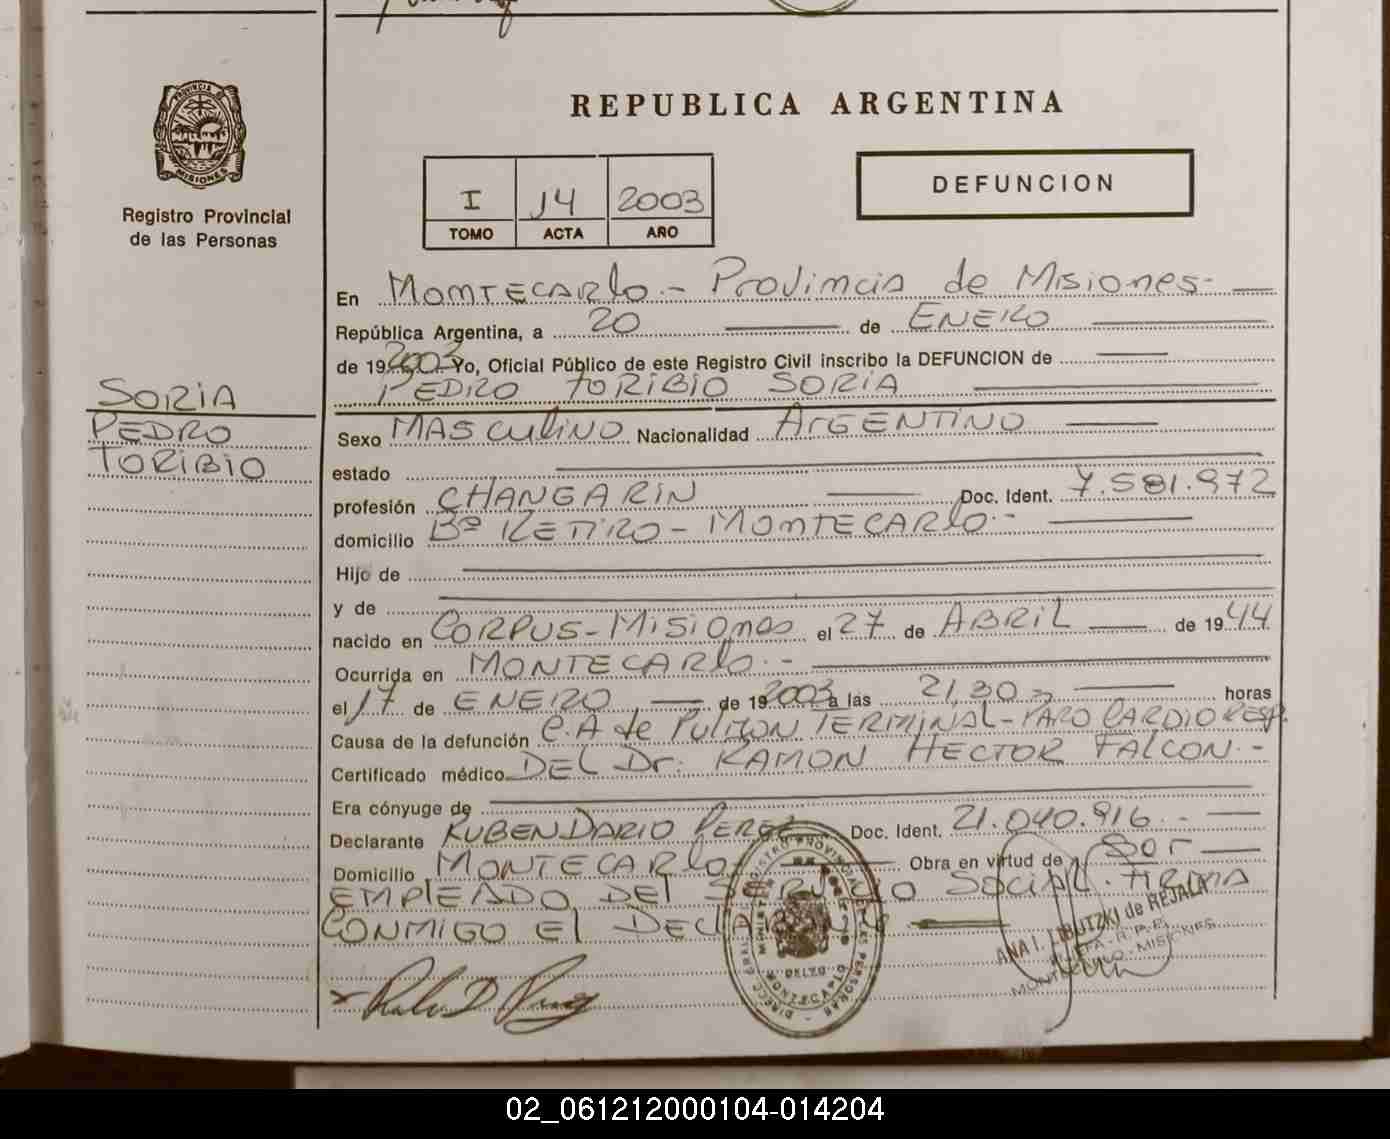 PROVINCIA D
MISIONES
Registro Provincial
de las Personas
SORIA
PEDRO
TORIBIO
REPUBLICA ARGENTINA
I 14 2003
TOMO ACTA AÑO
DEFUNCION
En MONTECARLO.- Provincia de Misiones-
República Argentina, a 20 de ENERO
de 19 2003. Yo, Oficial Público de este Registro Civil inscribo la DEFUNCION de
PEDRO TORIBIO SORIA
Sexo MASCULINO Nacionalidad ARGENTINO
estado
profesión CHANGARIN Doc. Ident. 7.581.972
domicilio Bº RETIRO - MONTECARLO.-
Hijo de
y de
nacido en CORPUS-Misiones el 27 de ABRIL de 19 44
Ocurrida en MONTECARLO.-
el 17 de ENERO de 19 2003 a las 21,30 horas
Causa de la defunción C.A de Pulmon TERMINAL-PARO CARDIORESP.
Certificado médico DEL Dr. RAMON HECTOR FALCON.-
Era cónyuge de
Declarante RUBEN DARIO PEREZ Doc. Ident. 21.040.916.-
Domicilio MONTECARLO Obra en virtud de ser
EMPLEADO DEL SERVICIO SOCIAL. FIRMA
CONMIGO El DECLARANTE
ANA I. LIBUTZKI de REJALA
JEFA - R.P.P.
MONTECARLO - MISIONES
02_061212000104-014204